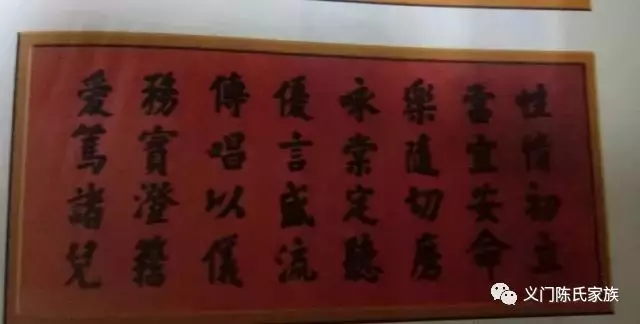 性情初立
當宜安命
樂隨切磨
咏棠定聽
優言盛流
傳唱以儀
務實澄
愛篤諸兒
义门陈氏家族